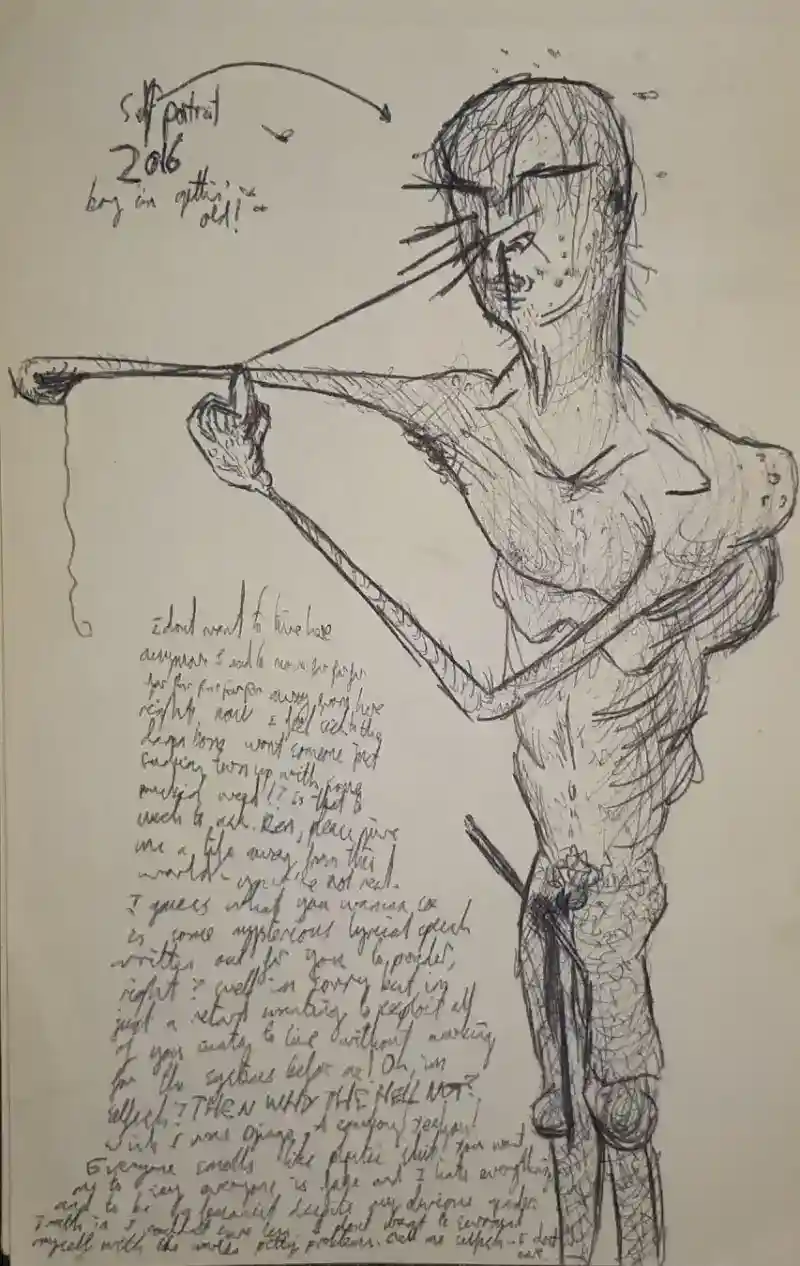 Self portrait
2016
boy im gettin'
old!
I dont want to live here
anymore I want to move far far far
far far far far far away from here
right now I feel
wont someone just
turn up with some
weed!? is that
much to ask. please give
me a life away from this
world - you're not real.
I guess what you wanna see
is some mysterious lyrical speech
written out for you to ponder,
right? well im sorry but im
just a retard wanting to exploit all
of you to live without working
for the systems before me! Oh, im
selfish? THEN WHY THE HELL NOT?
wish I was
Everyone smells like plastic shit. You want
me to say everyone is fake and I hate everything
and to be despite my devious
Truth is I couldnt care less. I dont want to surround
myself with the worlds petty problems. Call me selfish - I dont
care.